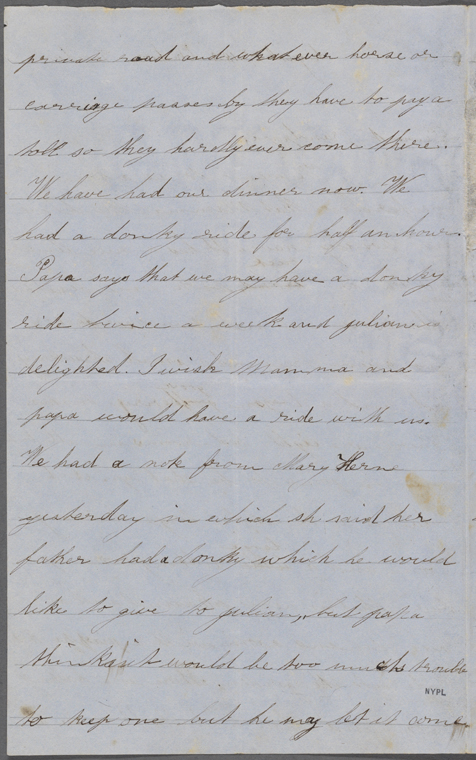 private road and whatever horse or
carriage passes by they have to pay a
toll so they hardly ever come there.
We have had our dinner now. We
had a donky ride for half an hour.
Papa says that we may have a donky
ride twice a week and julian is
delighted. I wish Mamma and
papa would have a ride with us.
We had a note from Mary Herne
yesterday in which sh said her
father had a donky which he would
like to give to julian, but papa
thinks it would be too much trouble
NYPL
to keep one but he may let it come